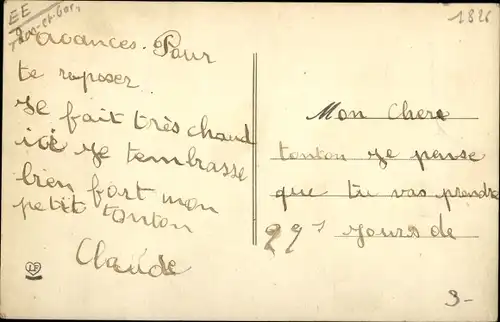 EE
Tarn-et-Gar.
1826
Mon Chere
tonton Je pense
que tu vas prendre
29 s jours de
vacances. Pour
te reposer
Je fait très chaud
ici Je tembrasse
bien fort mon
petit tonton
Claude
LF
3-